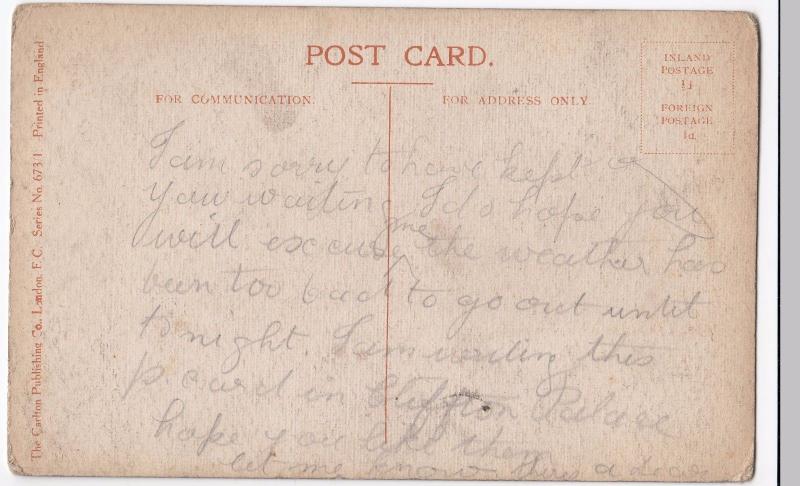 POST CARD.
FOR COMMUNICATION.
FOR ADDRESS ONLY.
INLAND
POSTAGE
½d
FOREIGN
POSTAGE
1d.
The Carlton Publishing Co., London, E.C. Series No. 673/1 Printed in England
I am sorry to have kept
you waiting I do hope you
will excuse me the weather has
been too bad to go out until
to night. I am writing this
p. card in Clifton Palace
hope you like them
let me know